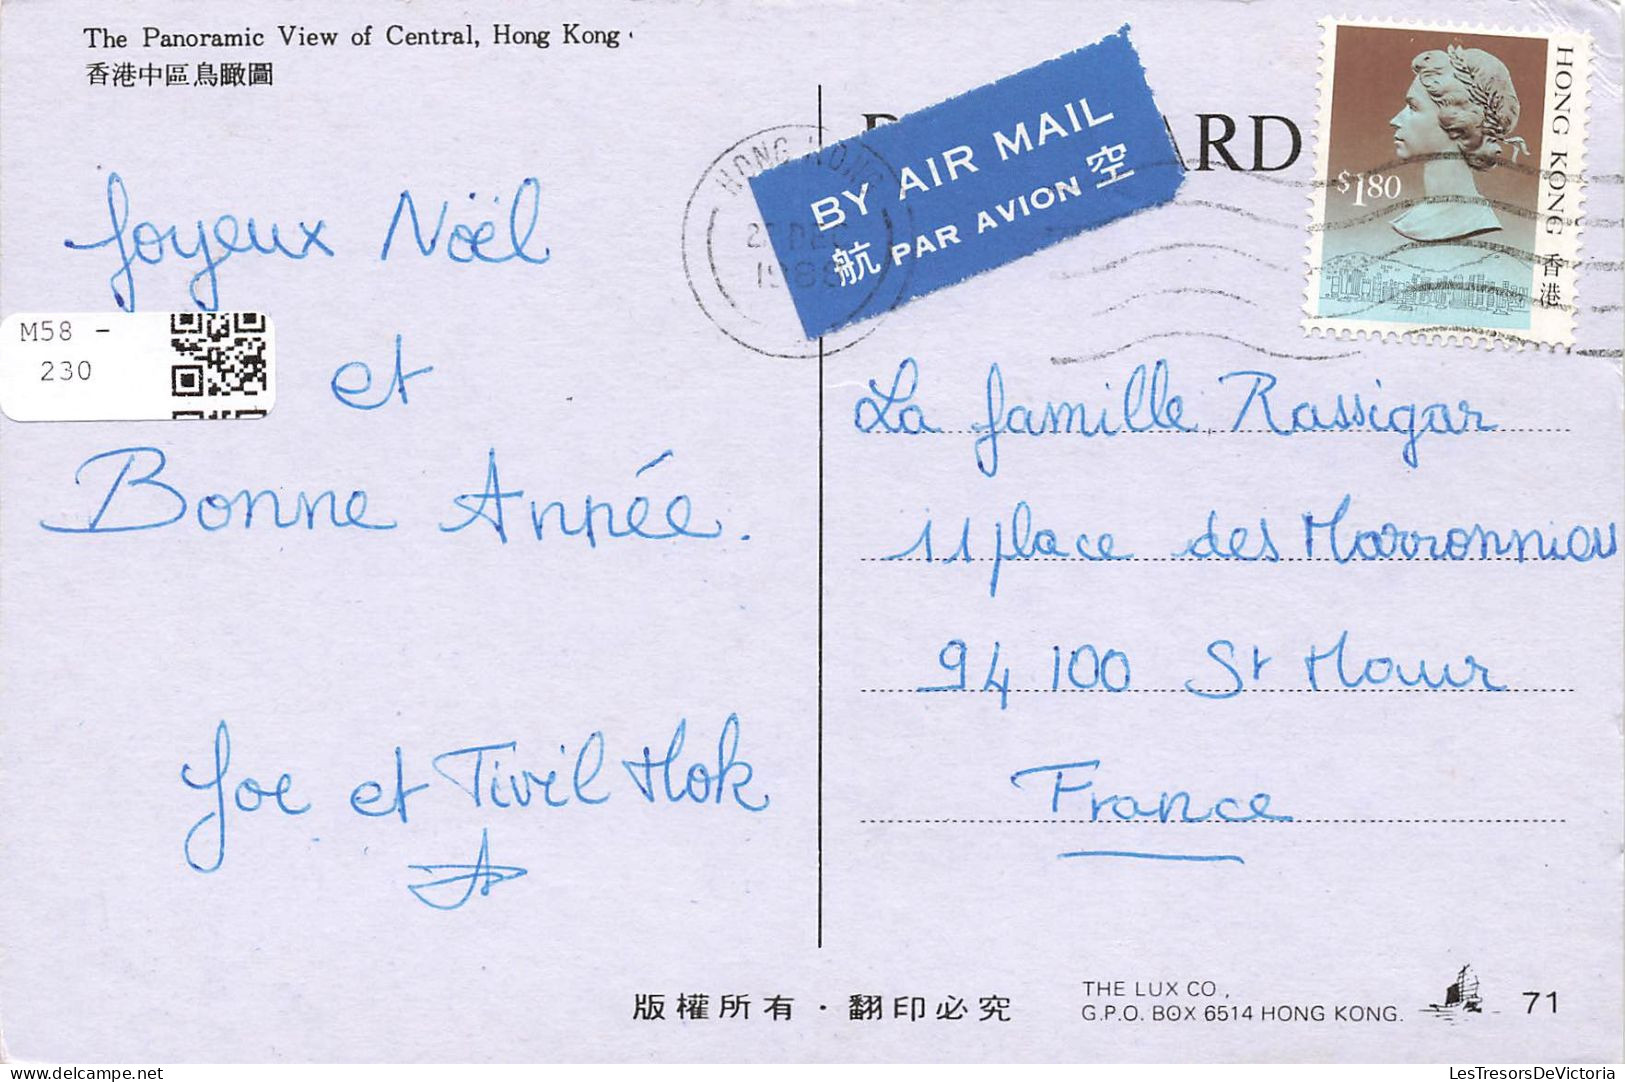 The Panoramic View of Central, Hong Kong
香港中區鳥瞰圖
HONG KONG
1988
BY AIR MAIL
航 PAR AVION 空
ARD
HONG KONG 香港
$1.80
Joyeux Noël
et
Bonne Année.
Joe et Tivil Hok
M58 -
230
La famille Rassigar
11 place des Marronniers
94 100 St Maur
France
版權所有・翻印必究
THE LUX CO.,
G.P.O. BOX 6514 HONG KONG.
71
LesTresorsDeVictoria